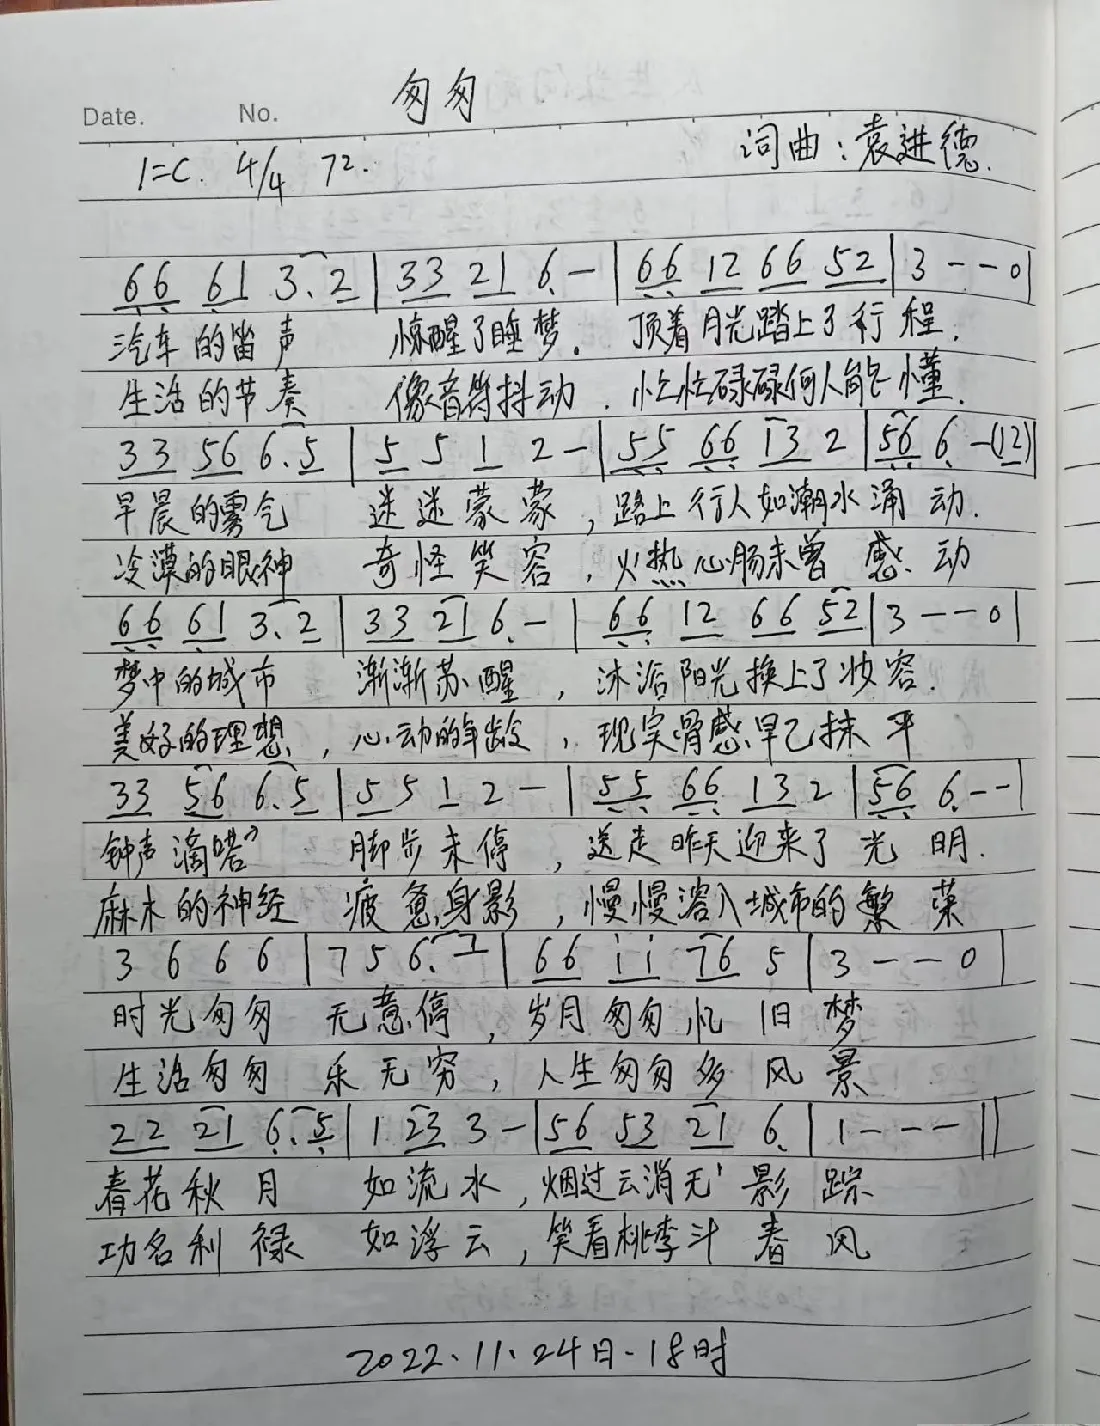 匆匆
Date. No.
词曲：袁进德.
1=C. 4/4 72.
66 61 3. 2 | 33 21 6 - | 66 12 66 52 | 3 - - 0 |
汽车的笛声 惊醒了睡梦. 顶着月光踏上了行程.
生活的节奏 像音符抖动. 忙忙碌碌何人能懂.
33 56 6. 5 | 5 5 1 2 - | 55 66 13 2 | 56 6 - (12) |
早晨的雾气 迷迷蒙蒙, 路上行人如潮水涌动.
冷漠的眼神 奇怪笑容, 火热心肠未曾感动
66 61 3. 2 | 33 21 6 - | 66 12 66 52 | 3 - - 0 |
梦中的城市 渐渐苏醒, 沐浴阳光换上了妆容.
美好的理想, 心动的年龄, 现实骨感早已抹平
33 56 6. 5 | 5 5 1 2 - | 55 66 13 2 | 56 6 - - |
钟声滴嗒 脚步未停, 送走昨天迎来了光明.
麻木的神经 疲惫身影, 慢慢溶入城市的繁荣
3 6 6 6 | 7 5 6. 7 | 66 ii 76 5 | 3 - - - 0 |
时光匆匆 无意停, 岁月匆匆忆旧梦
生活匆匆 乐无穷, 人生匆匆多风景
22 21 6. 5 | 1 23 3 - | 56 53 21 6 | 1 - - - ||
春花秋月 如流水, 烟过云消无影踪
功名利禄 如浮云, 笑看桃李斗春风
2022.11.24日.18时